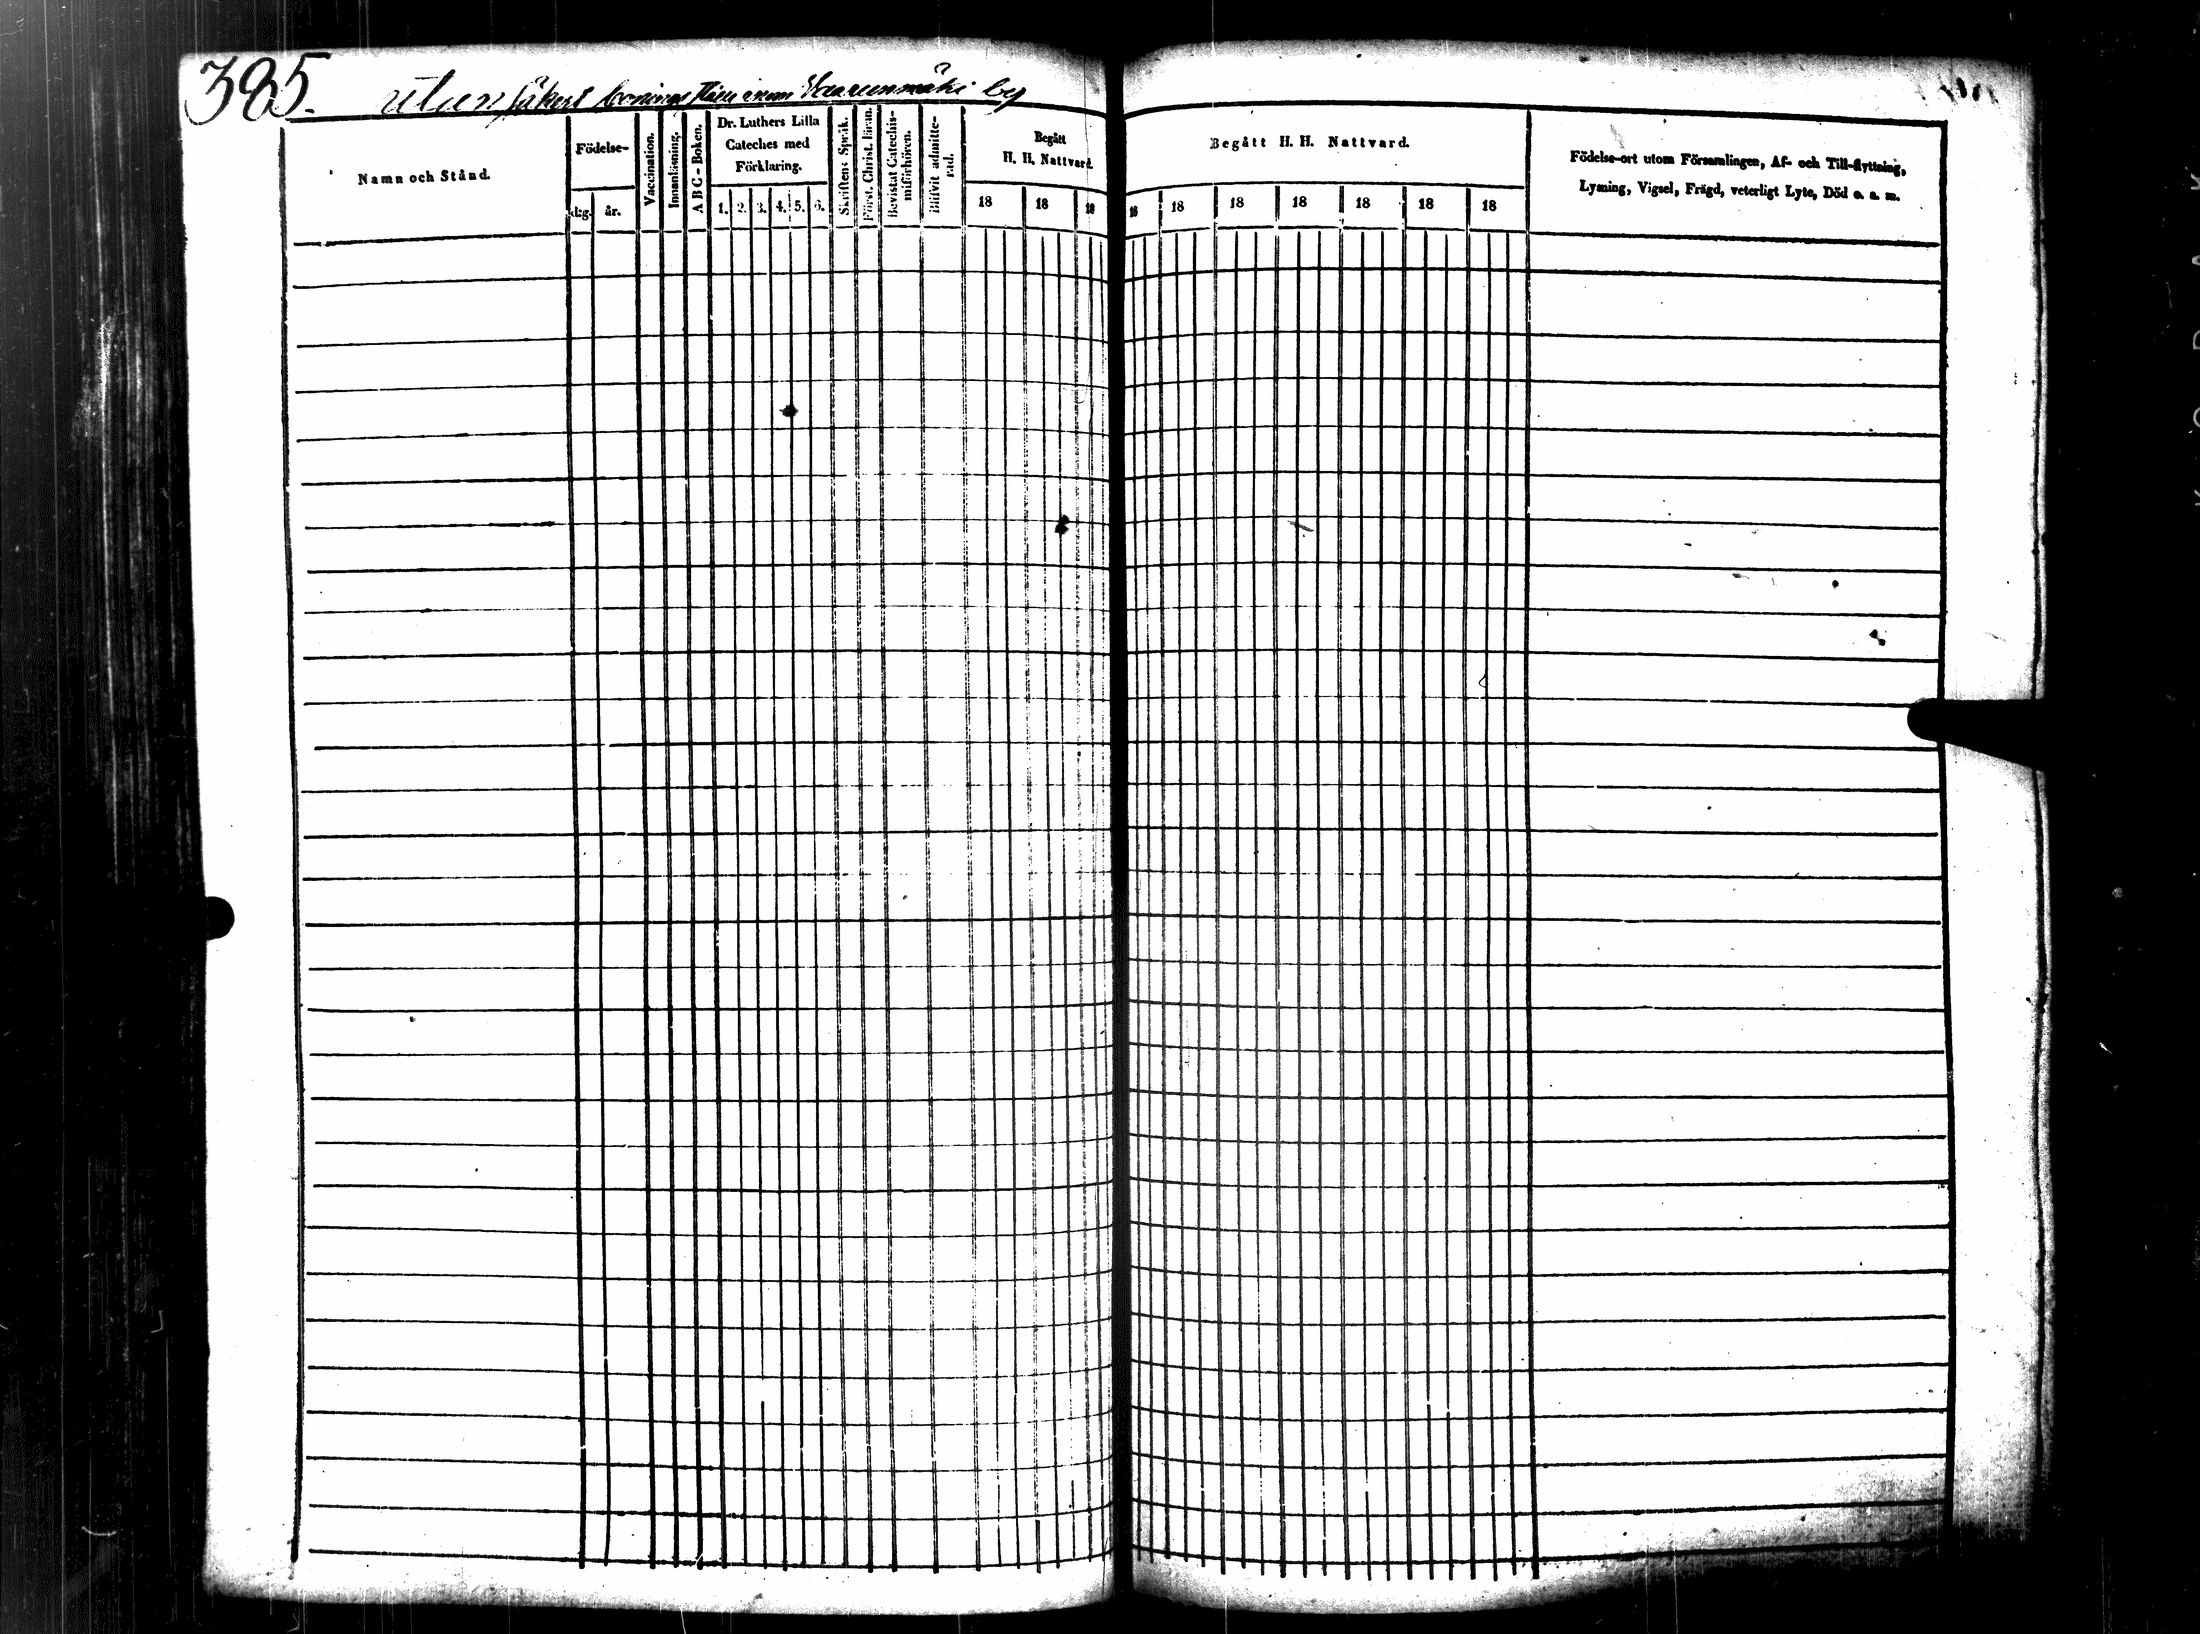 385.
utan säkert bonings ställe inom Vaarunmäki by
Namn och Stånd.
Födelse-
dag.
år.
Vaccination.
Innanläsning.
A B C - Boken.
Dr. Luthers Lilla
Cateches med
Förklaring.
1. 2. 3. 4. 5. 6.
Skriftens Språk.
Först. Christ. läran.
Bevistat Catechis-
miförhören.
Blifvit admitte-
rad.
Begått
H. H. Nattvard.
18 18 18
Begått H. H. Nattvard.
18 18 18 18 18 18 18
Födelse-ort utom Församlingen, Af- och Till-flyttning,
Lysning, Vigsel, Frägd, veterligt Lyte, Död o. s. m.